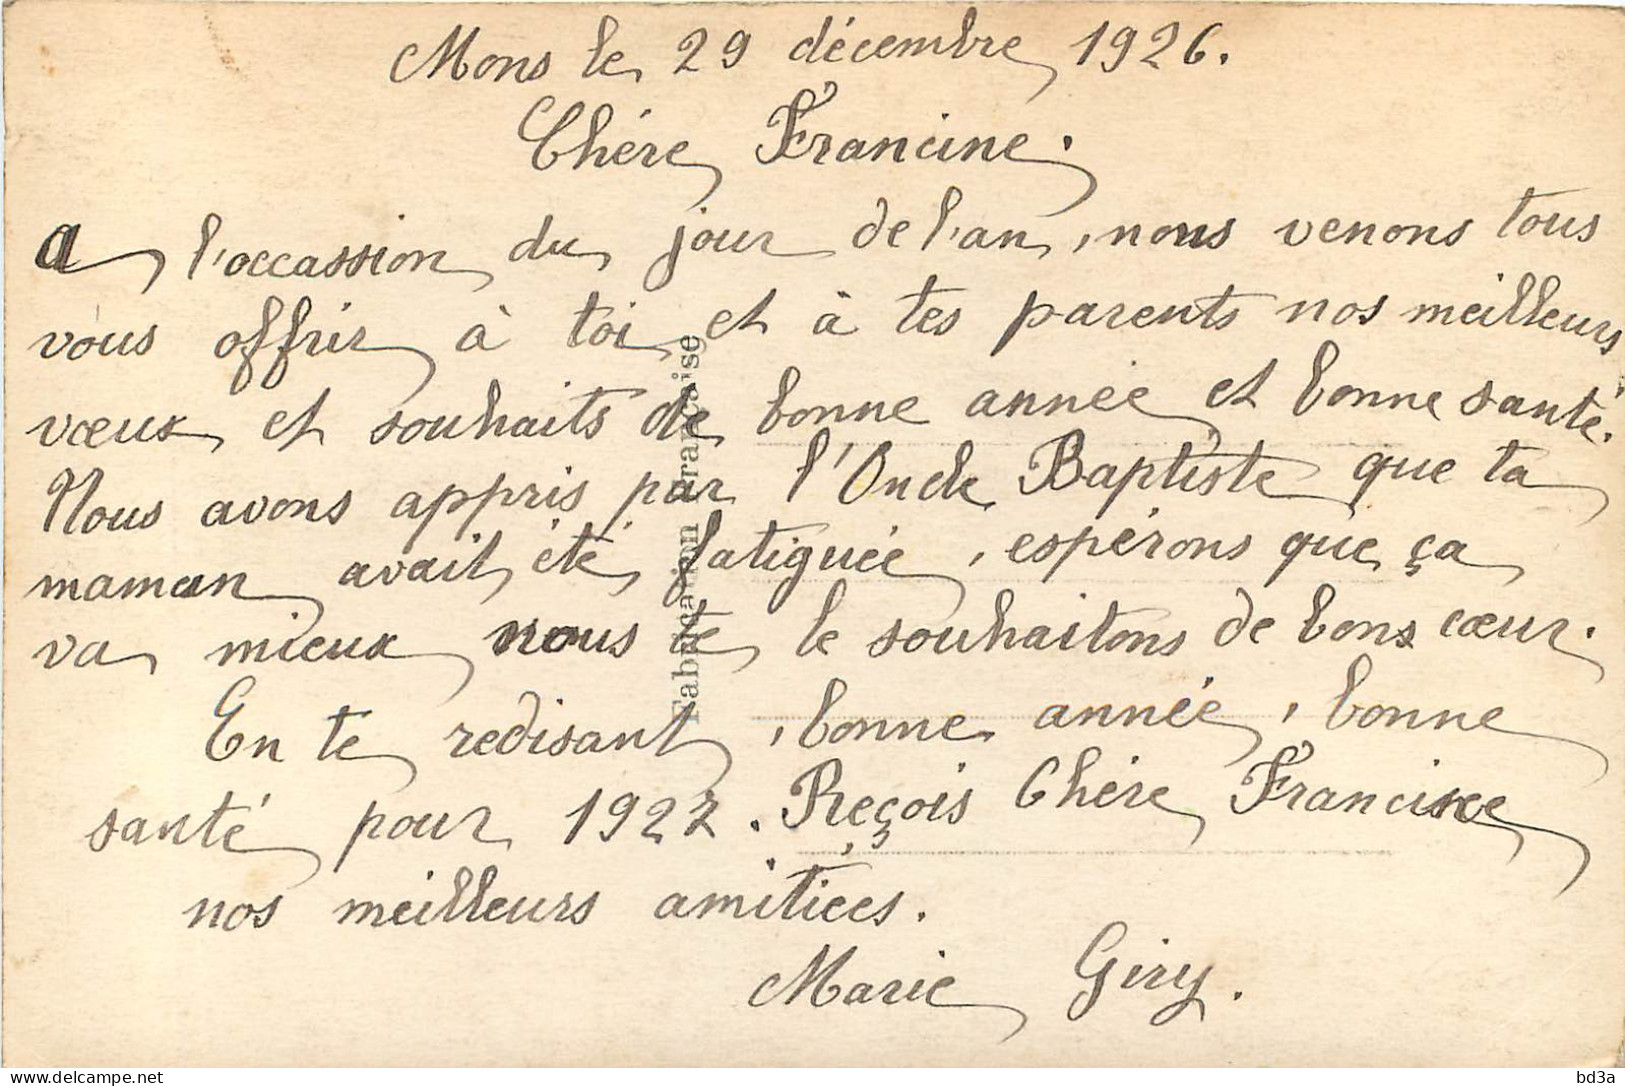 Mons le 29 décembre 1926.
Chére Francine.
A l'occassion du jour de l'an, nous venons tous
vous offrir à toi et à tes parents nos meilleurs
vœux et souhaits de bonne année et bonne santé.
Nous avons appris par l'Oncle Baptiste que ta
maman avait été fatiguée, espérons que ça
va mieux nous te le souhaitons de bons cœur.
En te redisant, bonne année, bonne
santé pour 1927. Reçois Chére Francine
nos meilleurs amitiées.
Marie Giry.
Fabrication Française
bd3a